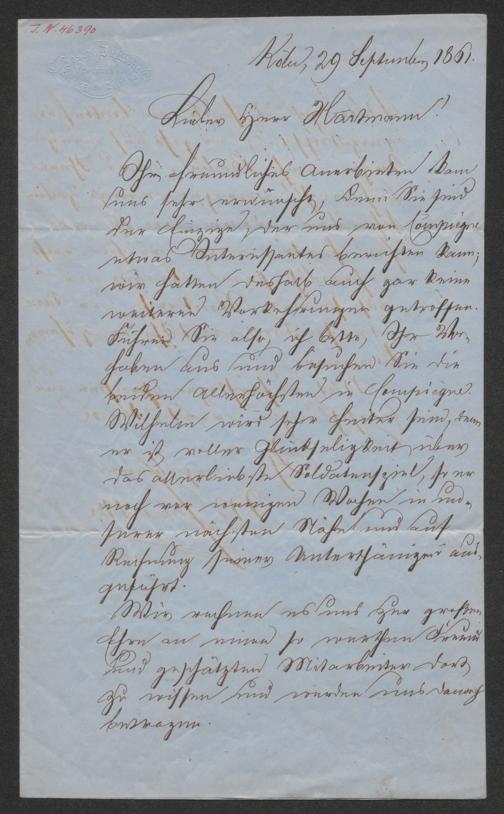 J. N. 46390
Köln, 29 September 1861.
Lieber Herr Hartmann!
Ihr freundliches Anerbieten kam
uns sehr erwünscht, denn Sie sind
der Einzige, der uns von Compiègne
etwas Interessantes berichten kann;
wir hätten deshalb auch gar keine
weiteren Vorkehrungen getroffen.
Führen Sie also, ich bitte, Ihr Vor-
haben aus und besuchen Sie die
beiden Allerhöchsten in Compiègne.
Wilhelm wird sehr heiter sein, denn
er ist voller Glückseligkeit über
das allerliebste Soldatenspiel, so er
noch vor wenigen Wochen in un-
serer nächsten Nähe und auf
Rechnung seiner Unterthänigen aus-
geführt.
Wir rechnen es uns zur großen
Ehre an einen so werthen Freund
und geschätzten Mitarbeiter dort
zu wissen und werden uns danach
betragen.